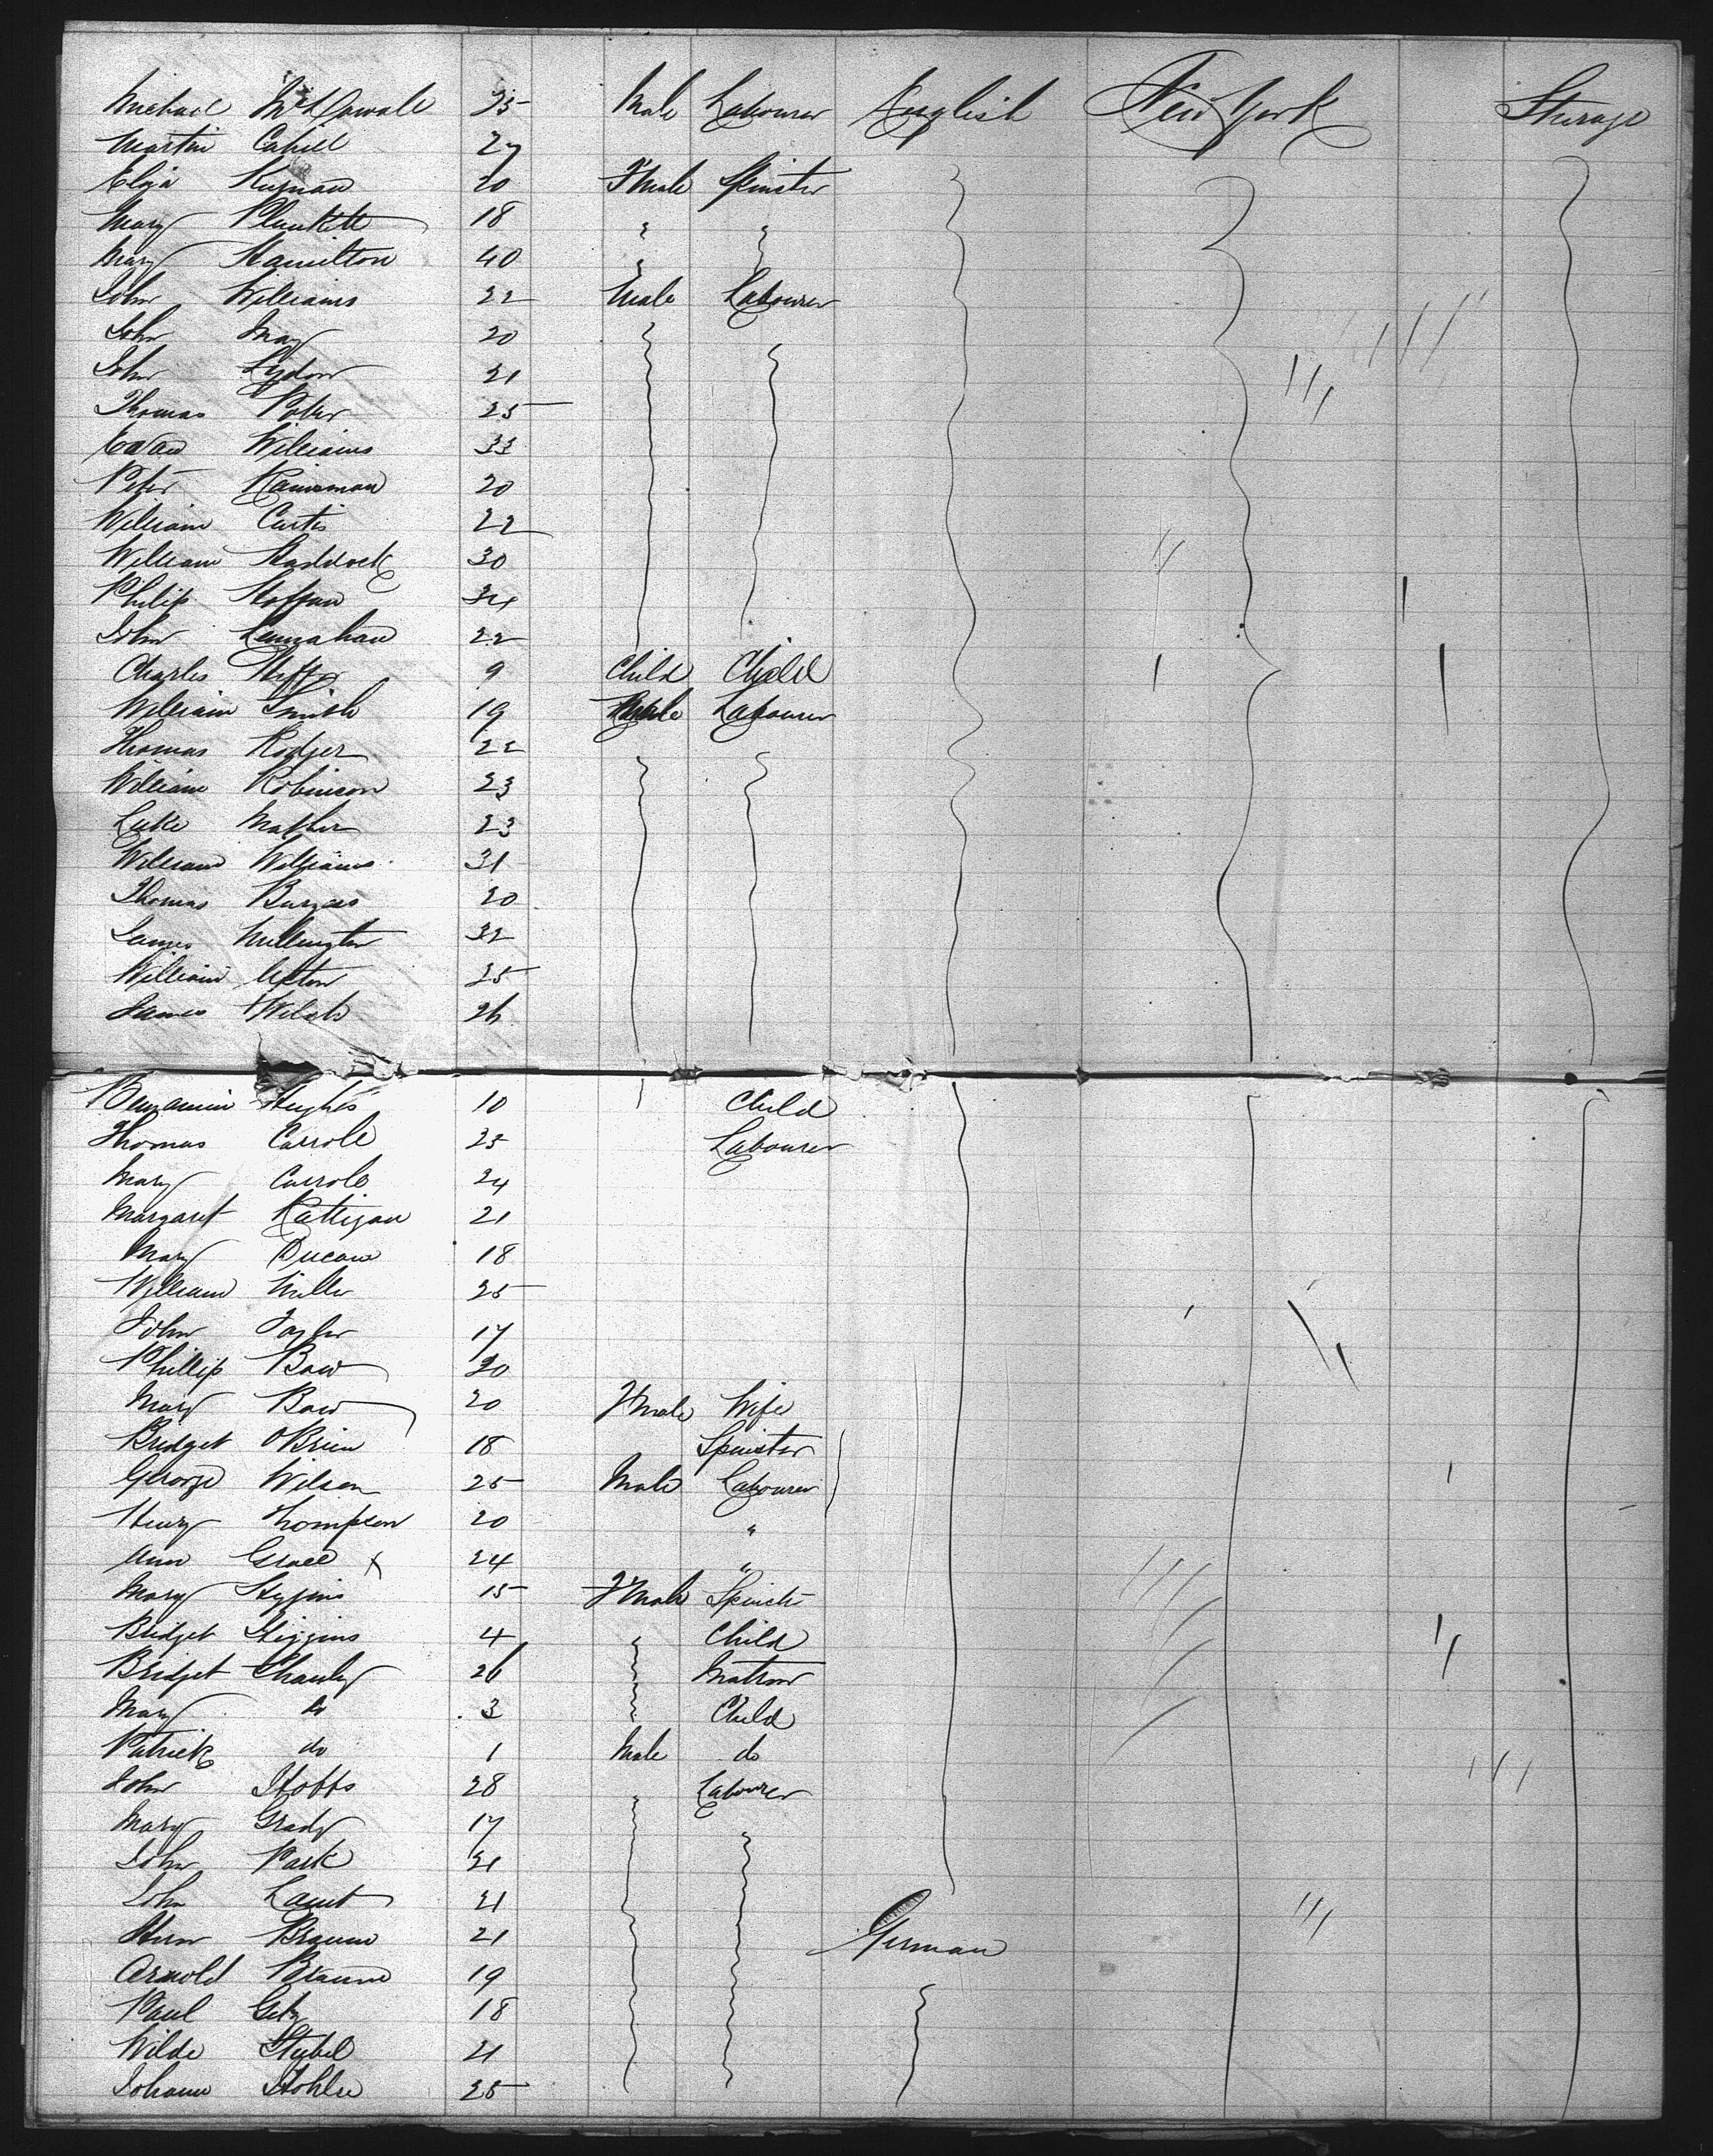 Michael 35 Male Labourer English New York Sterage
Martin Cahill 27
Eliza 20 F'Male Spinster
Mary Plunkett 18 " "
Mary Hamilton 40 " "
John Williams 22 Male Labourer
John May 20
John Lydon 21
Thomas 25
Evan Williams 33
Peter 20
William Curtis 22
William Haddock 30
Philip 34
John 22
Charles 9 Child Child
William Smith 19 Male Labourer
Thomas Rodger 22
William Robinson 23
Luke 23
William Williams 31
Thomas Burgess 20
James 32
William Upton 25
James Welsh 26
Benjamin Hughes 10 Child
Thomas Carroll 23 Labourer
Mary Carroll 24
Margaret Rattigan 21
Mary 18
William Miller 25
John Taylor 17
Phillip Bow 20
Mary Bow 20 F'Male Wife
Bridget OBrien 18 Spinster
George Wilson 25 Male Labourer
Henry Thompson 20 "
Ann Grace x 24 "
Mary 15 F'Male Spinstr
Bridget Higgins 4 " Child
Bridget 26 Matron
Mary do 3 Child
Patrick do 1 Male do
John Hobbs 28 Labourer
Mary Grady 17
John Park 21
John 21
21 German
Arnold 19
Paul 18
Wilde 21
Johann 25